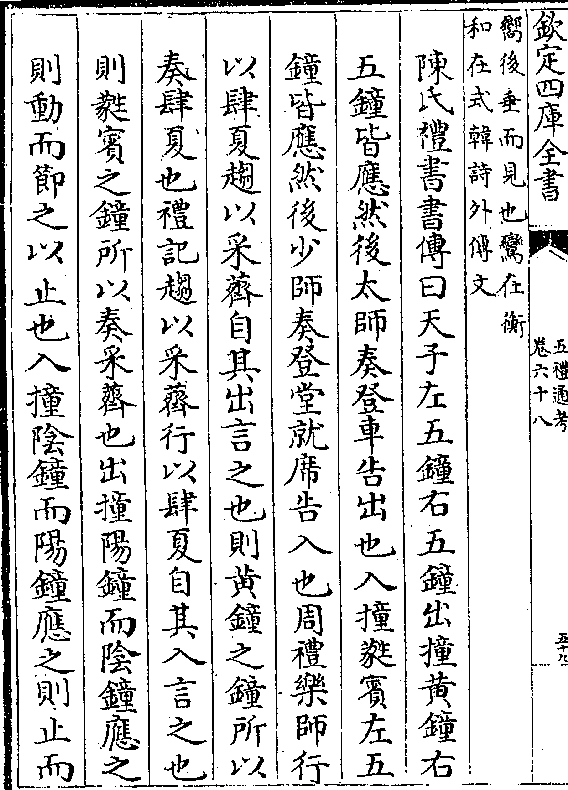 欽定四庫全書
五禮通考
卷六十八
嚮後垂而見也鸞在衡
和在式韓詩外傳文
陳氏禮書書傳曰天子左五鐘右五鐘出撞黃鐘右
五鐘皆應然後太師奏登車告出也入撞蕤賓左五
鐘皆應然後少師奏登堂就席告入也周禮樂師行
以肆夏趨以采薺自其出言之也則黃鐘之鐘所以
奏肆夏也禮記趨以采薺行以肆夏自其入言之也
則蕤賓之鐘所以奏采薺也出撞陽鐘而陰鐘應之
則動而節之以止也入撞陰鐘而陽鐘應之則止而